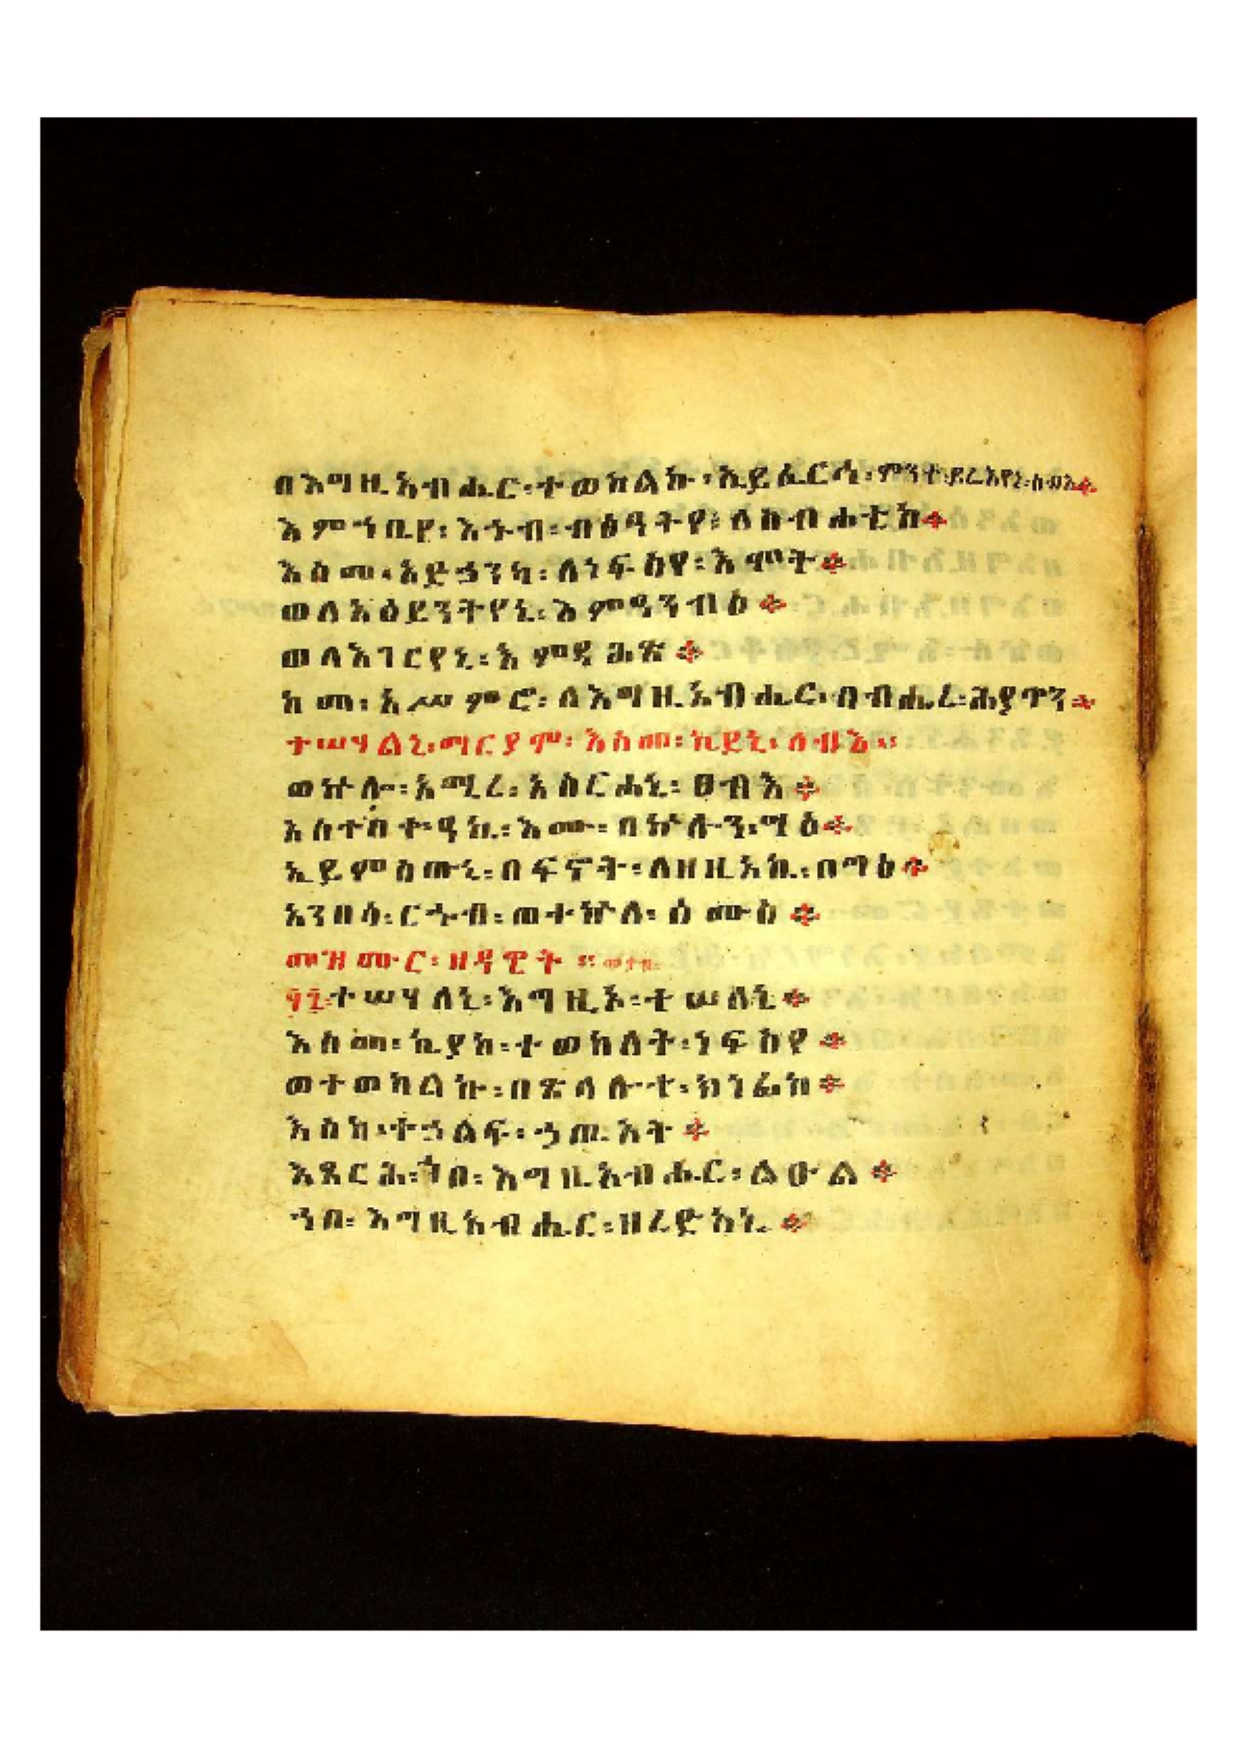 በእግዚአብሔር፡ተወከልኩ፡ኢይፈርህ፡ምንተ፡ይሬእየኒ፡ሰብእ፨
እምኀቤየ፡እኁብ፡ብፅዓትየ፡ለከብሐቲከ፨
እስመ፡አድኃንካ፡ለነፍስየ፡እሞት፨
ወለአዕይንትየኒ፡እምዓንብዕ፨
ወለእገርየኒ፡እምዳሕፅ፨
ከመ፡አሥምሮ፡ለእግዚአብሔር፡በብሔረ፡ሕያዋን፨
ተሣሃልኒ፡ማርያም፡እስመ፡ኬደኒ፡ሰብእ።
ወኵሎ፡አሚረ፡አስርሐኒ፡ፀብእ፨
እስተበቍዓኪ፡እሙ፡በኵሉን፡ማዕ፨
ኢይምስጡኒ፡በፍኖት፡ለዘዚአኪ፡በግዕ፨
አንበሳ፡ርኁብ፡ወተኵላ፡ዕሙስ፨
መዝሙር፡ዘዳዊት።
፶፮ተሣሃለኒ፡እግዚኦ፡ተሣሃለኒ፨
እስመ፡ኪያከ፡ተወከለት፡ነፍስየ፨
ወተወከልኩ፡በጽላሎተ፡ክነፊከ፨
እስከ፡ተኃልፍ፡ኃጢአት፨
እጸርሕ፡ኀበ፡እግዚአብሔር፡ልዑል፨
ኀበ፡እግዚአብሔር፡ዘረድአኒ፨